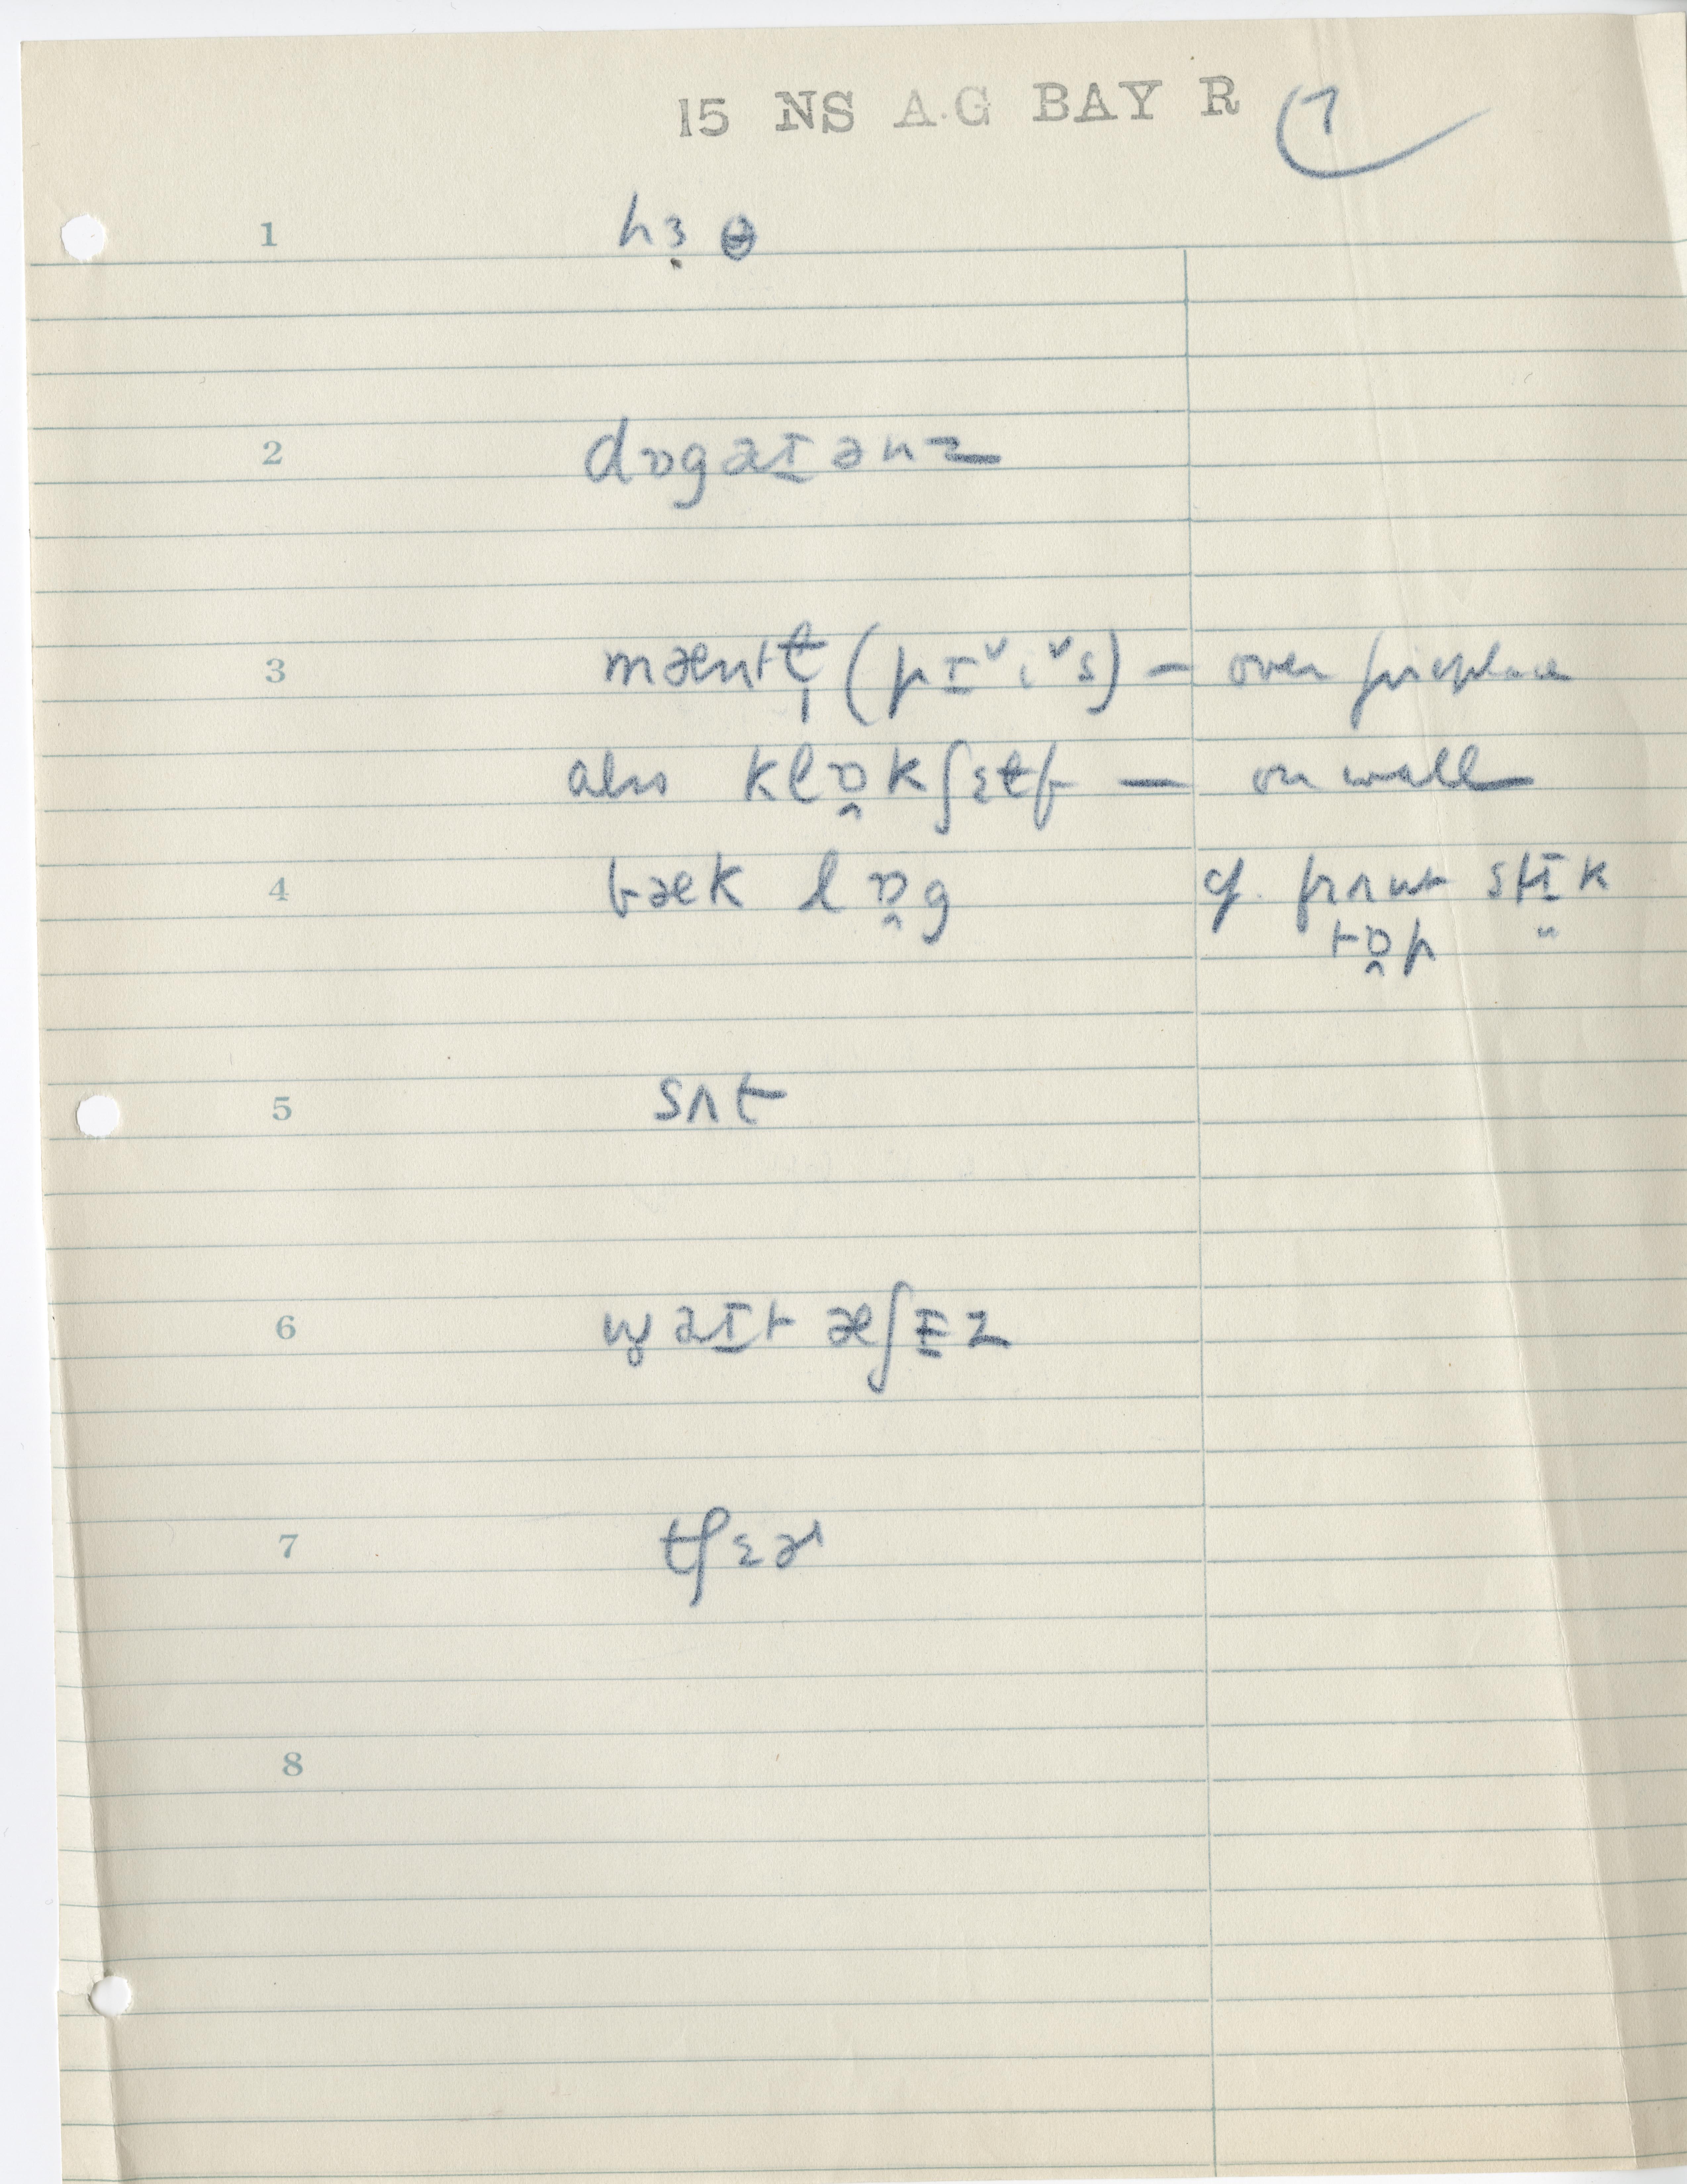 15 NS A.G BAY R 7
1 hɜ̣ θ
2 dɒgaɪənz
3 mænt ɫ̩ (pɪˇiˇs) — over fireplace
also klɒ̭kʃɛɫf — on wall
4 bæk lɒ̭g cf. frʌnt stɪk
tɒ̭p "
5 sʌt
6 ʍaɪt æʃɪz
7 tʃɛɚ
8